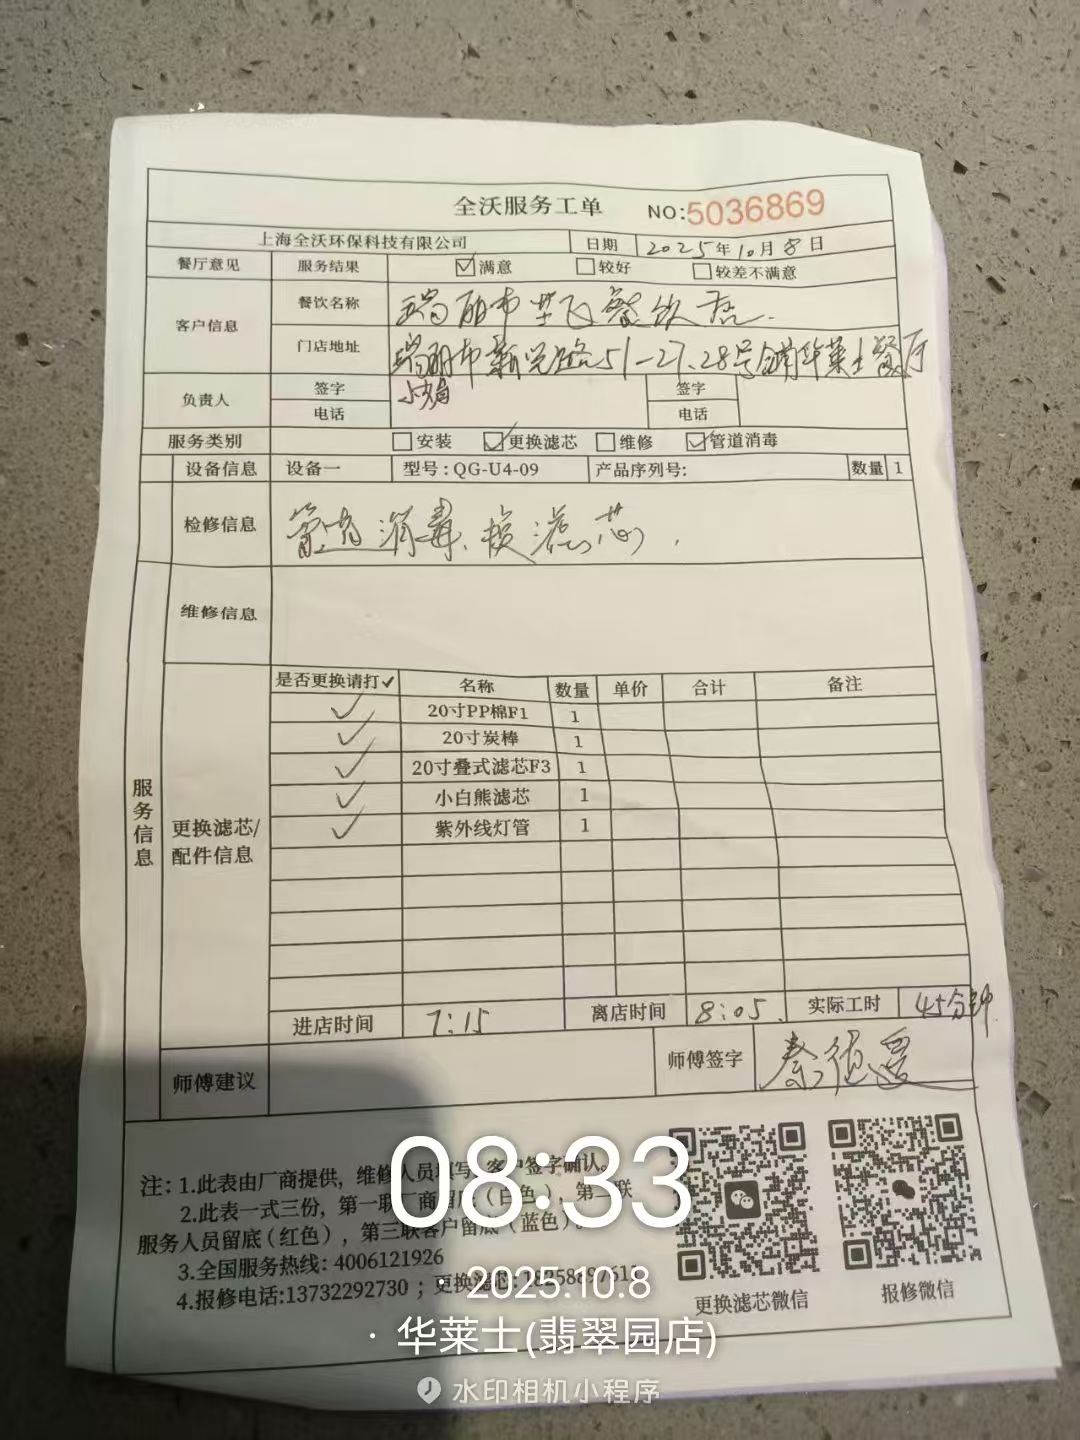 全沃服务工单 NO:5036869
上海全沃环保科技有限公司 日期 2025年10月8日
餐厅意见 服务结果 满意 较好 较差不满意
客户信息 餐饮名称 瑞丽市 飞餐饮店.
门店地址 瑞丽市新光路51-27.28号 华莱士餐厅
负责人 签字 签字
电话 电话
服务类别 安装 更换滤芯 维修 管道消毒
设备信息 设备一 型号:QG-U4-09 产品序列号: 数量 1
检修信息 管道消毒、换滤芯.
维修信息
服务信息
更换滤芯/
配件信息
是否更换请打✓ 名称 数量 单价 合计 备注
✓ 20寸PP棉F1 1
✓ 20寸炭棒 1
✓ 20寸叠式滤芯F3 1
✓ 小白熊滤芯 1
✓ 紫外线灯管 1
进店时间 7:15 离店时间 8:05. 实际工时 45分钟
师傅建议 师傅签字 秦
注:1.此表由厂商提供，维修人员填写,客户签字确认。
2.此表一式三份，第一联厂商留底(白色)，第二联
服务人员留底(红色)，第三联客户留底(蓝色)。
3.全国服务热线:4006121926
4.报修电话:13732292730；更换滤芯:
更换滤芯微信 报修微信
08:33
2025.10.8
· 华莱士(翡翠园店)
水印相机小程序